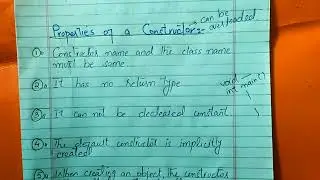 Properties of a Constructor:-
can be overloaded
1) Constructor name and the class name
must be same.
2) It has no return type
void
int main()
3) It can not be decleared constant.
4) The default constructor is implicitly
created
5) When creating an object, the constructor